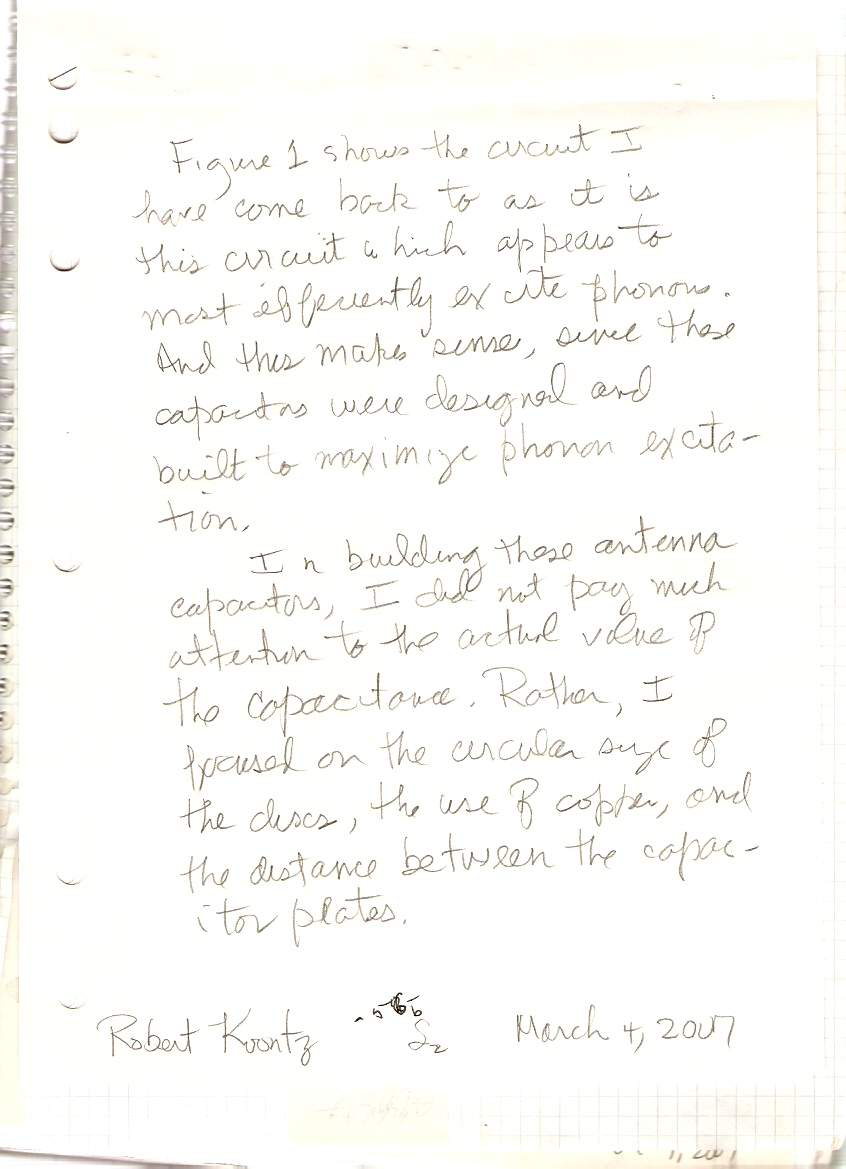 Figure 1 shows the circuit I
have come back to as it is
this circuit which appears to
most efficiently excite phonons.
And this makes sense, since these
capacitors were designed and
built to maximize phonon excita-
tion.
In building these antenna
capacitors, I did not pay much
attention to the actual value of
the capacitance. Rather, I
focused on the circular size of
the discs, the use of copper, and
the distance between the capac-
itor plates.
Robert Koontz March 4, 2007